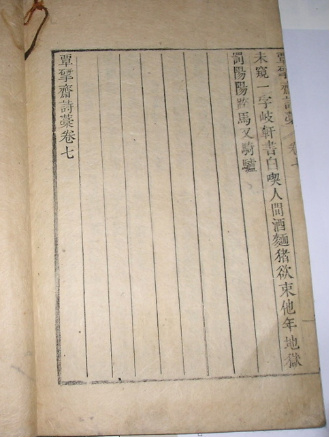 覃揅齋詩藁 卷七
未窺一字岐軒書白喫人間酒麵猪欲束他年地獄
罰陽陽跨馬又騎驢
覃揅齋詩藁卷七